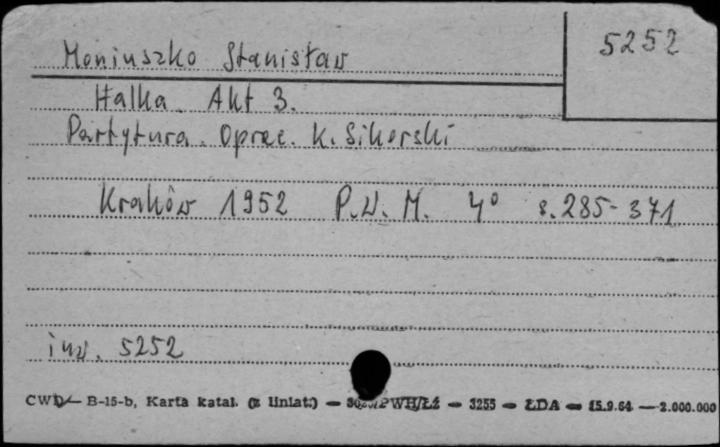 5252
Moniuszko Stanisław
Halka. Akt 3.
Partytura. Oprac. K. Sikorski
Kraków 1952 P.W.M. 4° s. 285-371
inw. 5252
CWD — B-15-b, Karta katal. (z liniat.) — PWH/Łź — 3255 — ŁDA — 15.9.64 — 2.000.000